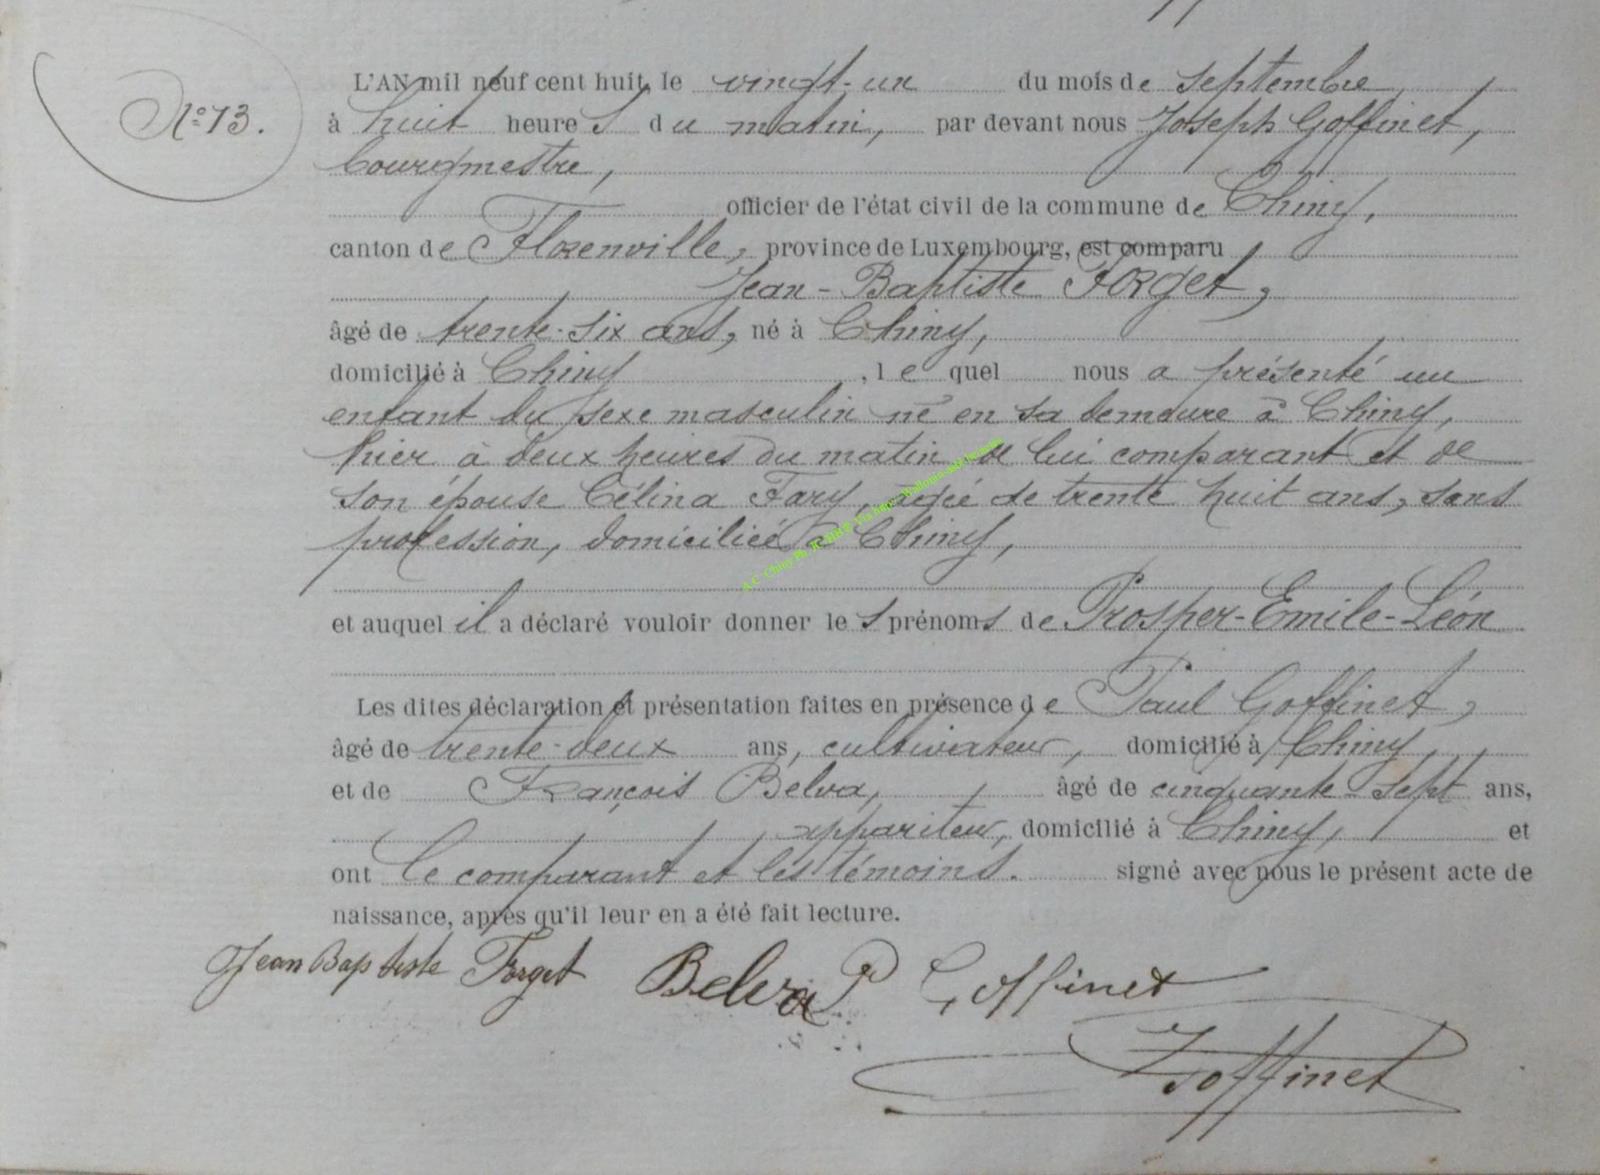 N° 13.
L'AN mil neuf cent huit, le vingt-un du mois de septembre,
à huit heures du matin, par devant nous Joseph Goffinet,
bourgmestre,
officier de l'état civil de la commune de Chiny,
canton de Florenville, province de Luxembourg, est comparu
Jean-Baptiste Forget,
âgé de trente-six ans, né à Chiny,
domicilié à Chiny, lequel nous a présenté un
enfant du sexe masculin né en sa demeure à Chiny,
hier à deux heures du matin de lui comparant et de
son épouse Célina Fary, agée de trente huit ans, sans
profession, domiciliée à Chiny,
et auquel il a déclaré vouloir donner les prénoms de Prosper-Emile-Léon
Les dites déclaration et présentation faites en présence de Paul Goffinet,
âgé de trente-deux ans, cultivateur, domicilié à Chiny,
et de François Belva, âgé de cinquante-sept ans,
appariteur, domicilié à Chiny, et
ont le comparant et les témoins. signé avec nous le présent acte de
naissance, après qu'il leur en a été fait lecture.
Jean Baptiste Forget Belva P Goffinet
J Goffinet